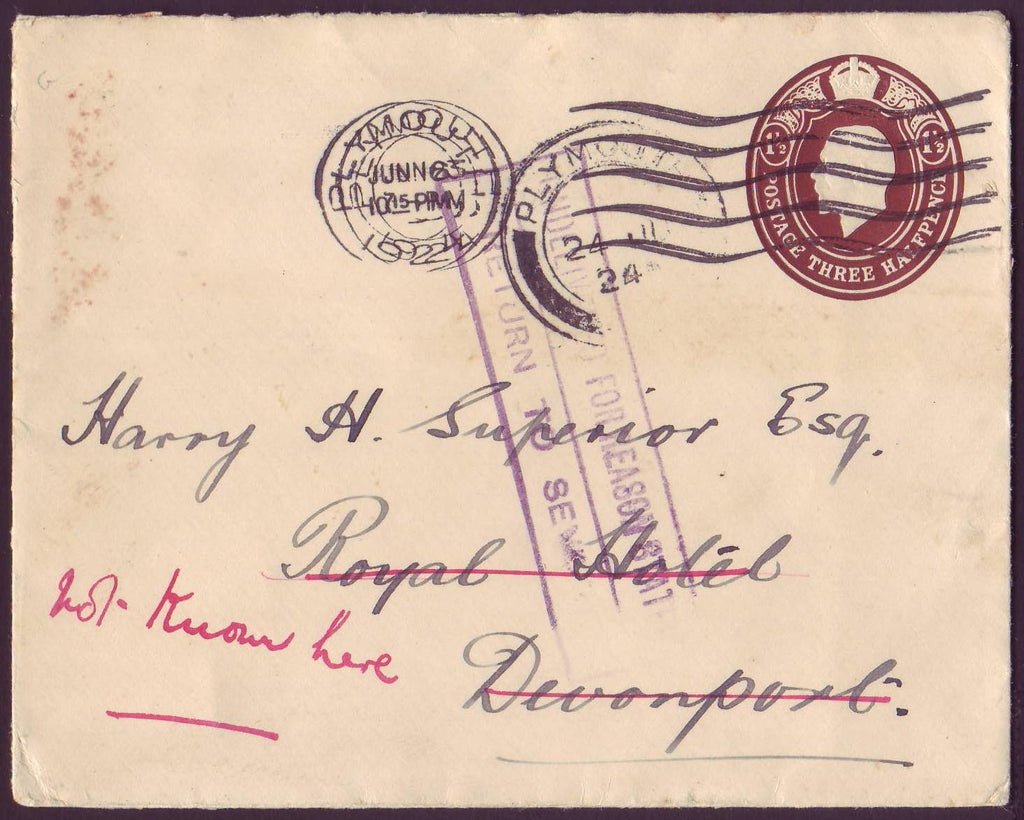 PLYMOUTH
PLYMOUTH
24 JU
24
1½ 1½
POSTAGE THREE HALFPENCE
RETURN TO
FOR REASON
Harry H. Superior Esq.
Royal Hotel
Devonport.
Not Known here